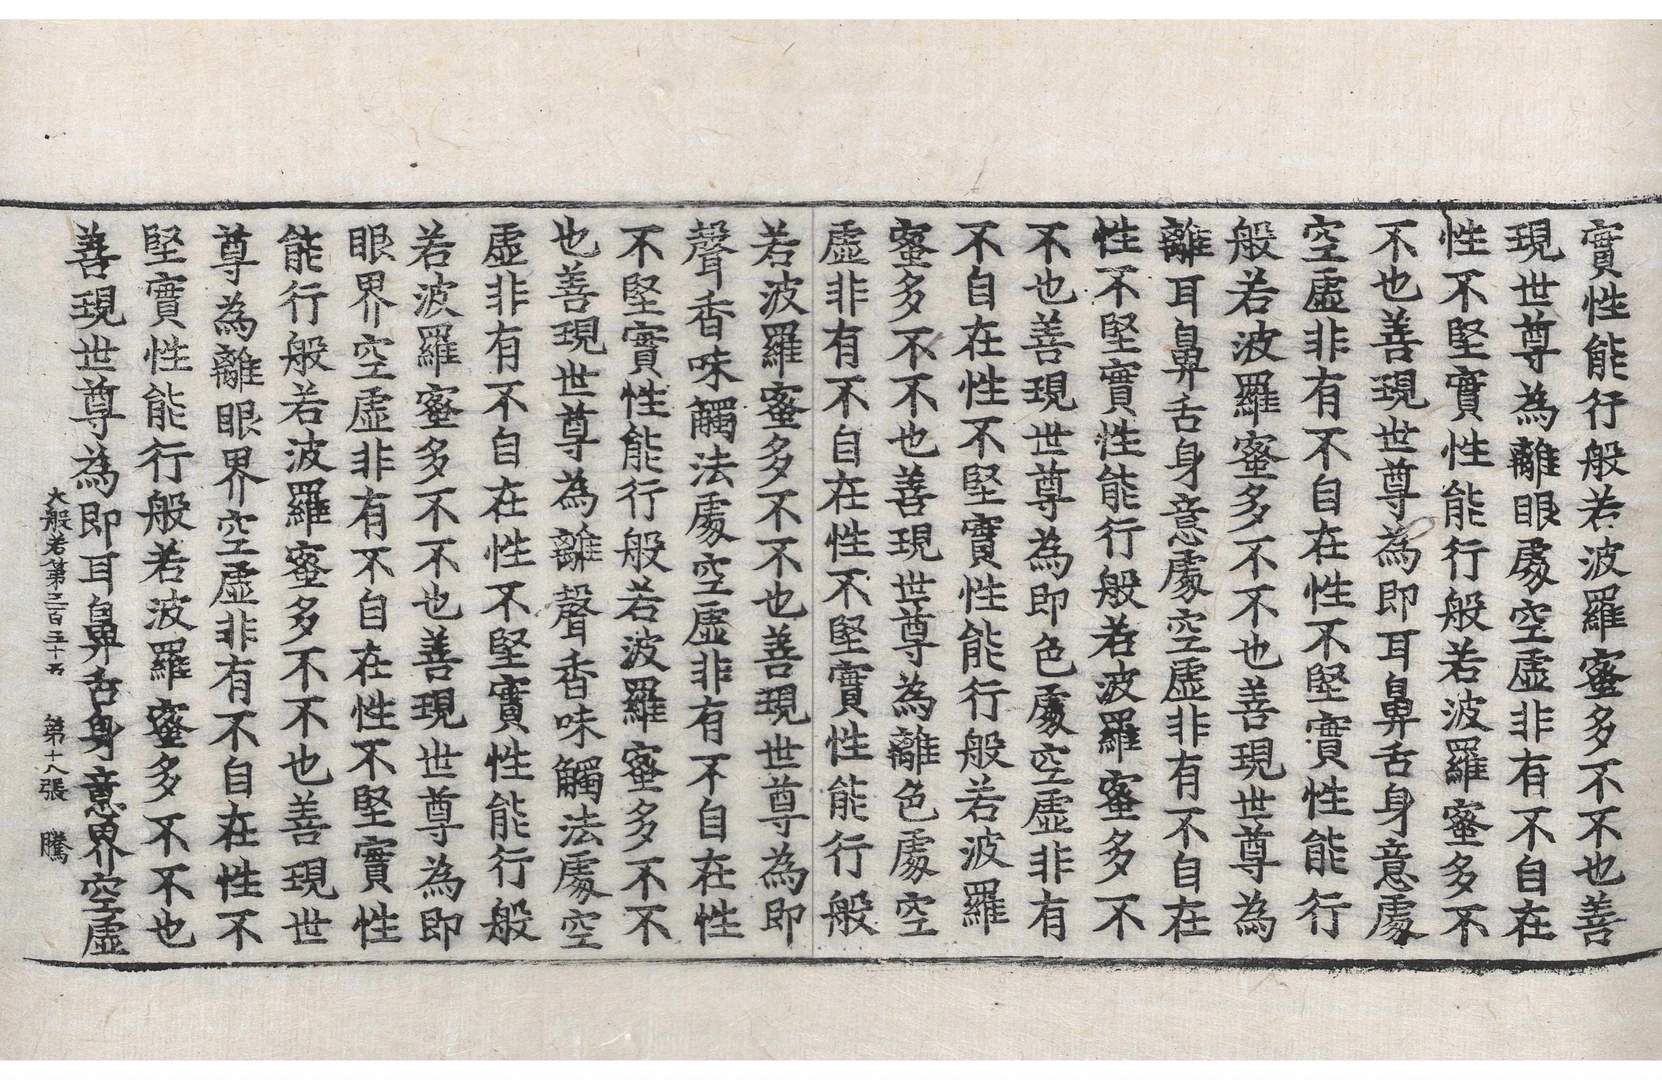 實性能行般若波羅蜜多不不也善
現世尊為離眼處空虛非有不自在
性不堅實性能行般若波羅蜜多不
不也善現世尊為即耳鼻舌身意處
空虛非有不自在性不堅實性能行
般若波羅蜜多不不也善現世尊為
離耳鼻舌身意處空虛非有不自在
性不堅實性能行般若波羅蜜多不
不也善現世尊為即色處空虛非有
不自在性不堅實性能行般若波羅
蜜多不不也善現世尊為離色處空
虛非有不自在性不堅實性能行般
若波羅蜜多不不也善現世尊為即
聲香味觸法處空虛非有不自在性
不堅實性能行般若波羅蜜多不不
也善現世尊為離聲香味觸法處空
虛非有不自在性不堅實性能行般
若波羅蜜多不不也善現世尊為即
眼界空虛非有不自在性不堅實性
能行般若波羅蜜多不不也善現世
尊為離眼界空虛非有不自在性不
堅實性能行般若波羅蜜多不不也
善現世尊為即耳鼻舌身意界空虛
大般若第三百五十五 第十八張 騰